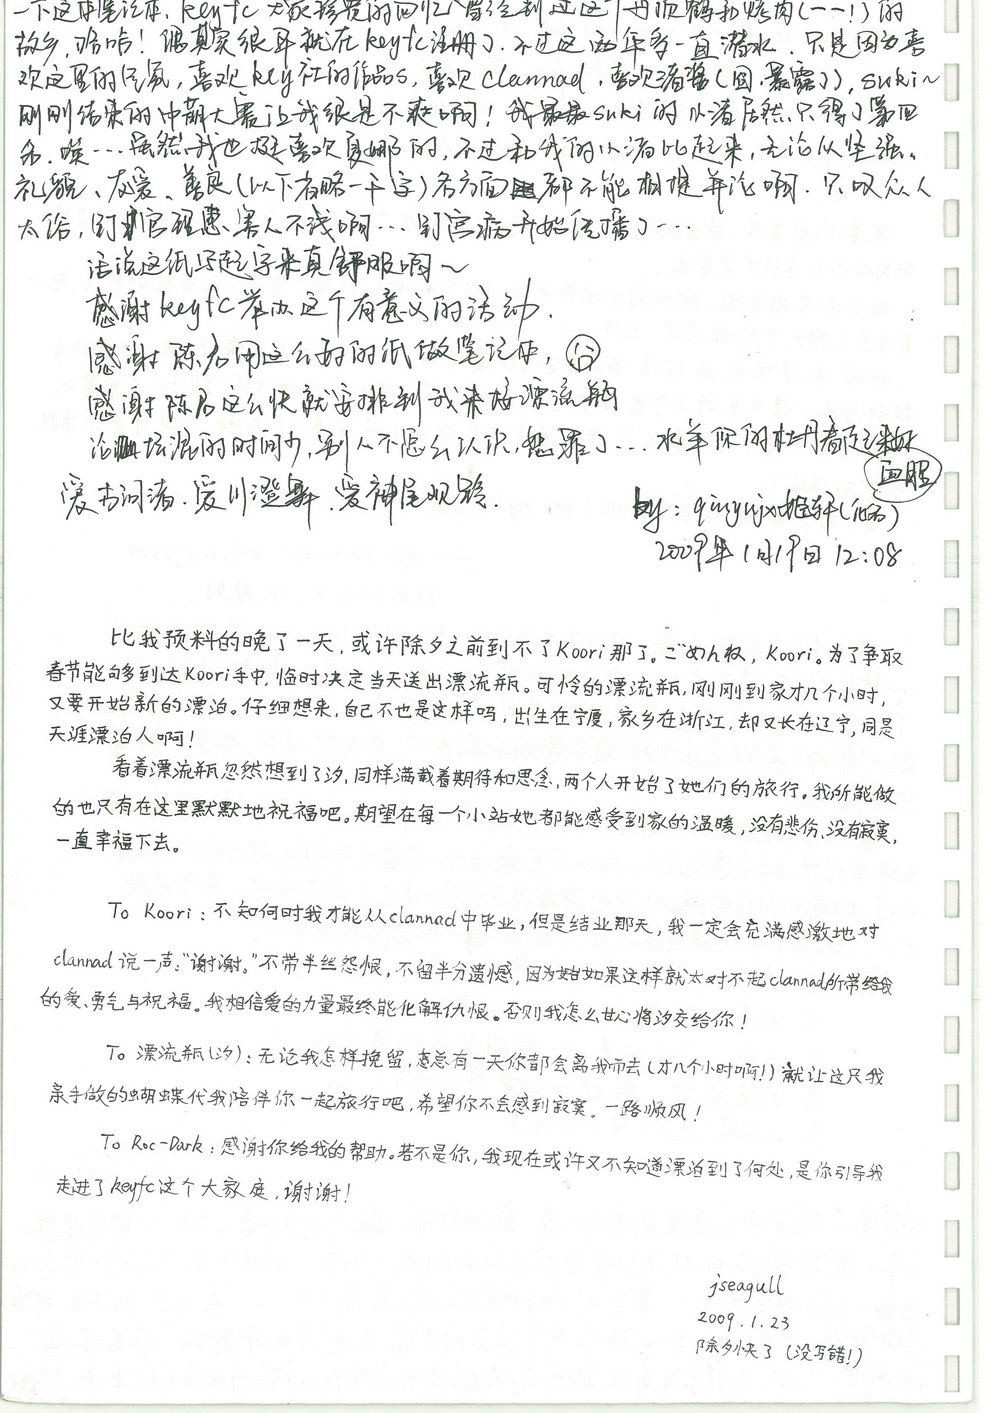 一下这本笔记本，keyfc 大家珍贵的回忆，曾经到过这个丹顶鹤和烤肉(一一!)的
故乡，哈哈！偶其实很早就在keyfc注册了，不过这两年多一直潜水，只是因为喜
欢这里的气氛，喜欢key社的作品，喜欢clannad，喜欢渚酱(囧，暴露了)，suki~
刚刚结束的中萌大赛让我很是不爽啊！我最最suki的小渚居然只得了第四
名，唉…虽然我也挺喜欢夏娜的，不过和我的小渚比起来，无论从坚强、
礼貌、友爱、善良(以下省略一千字)各方面都不能相提并论啊，只叹众人
太俗，钉宫理惠害人不浅啊…钉宫病开始传播了…
话说这纸写起字来真舒服啊~
感谢keyfc举办这个有意义的活动.
感谢陈君用这么好的纸做笔记本，
感谢陈君这么快就安排到我来接漂流瓶
论坛混的时间少，别人不怎么认识，恕罪了…
爱古河渚.爱川澄舞.爱神尾观铃.
2009年1月19日12:08
比我预料的晚了一天，或许除夕之前到不了Koori那了。ごめんね，Koori。为了争取
春节能够到达Koori手中，临时决定当天送出漂流瓶。可怜的漂流瓶，刚刚到家才几个小时，
又要开始新的漂泊。仔细想来，自己不也是这样吗，出生在宁厦，家乡在浙江，却又长在辽宁，同是
天涯漂泊人啊！
看着漂流瓶忽然想到了汐，同样满载着期待和思念，两个人开始了她们的旅行。我所能做
的也只有在这里默默地祝福吧。期望在每一个小站她都能感受到家的温暖，没有悲伤、没有寂寞，
一直幸福下去。
To Koori：不知何时我才能从clannad中毕业，但是结业那天，我一定会充满感激地对
clannad说一声：“谢谢。”不带半丝怨恨，不留半分遗憾，因为如果这样就太对不起clannad所带给我
的爱、勇气与祝福。我相信爱的力量最终能化解仇恨。否则我怎么甘心将汐交给你！
To 漂流瓶(汐)：无论我怎样挽留，总有一天你都会离我而去(才几个小时啊!)就让这只我
亲手做的蝴蝶代我陪伴你一起旅行吧，希望你不会感到寂寞。一路顺风！
To Roc-Dark：感谢你给我的帮助。若不是你，我现在或许又不知道漂泊到了何处，是你引导我
走进了keyfc这个大家庭，谢谢！
jseagull
2009.1.23
除外快了(没写错!)